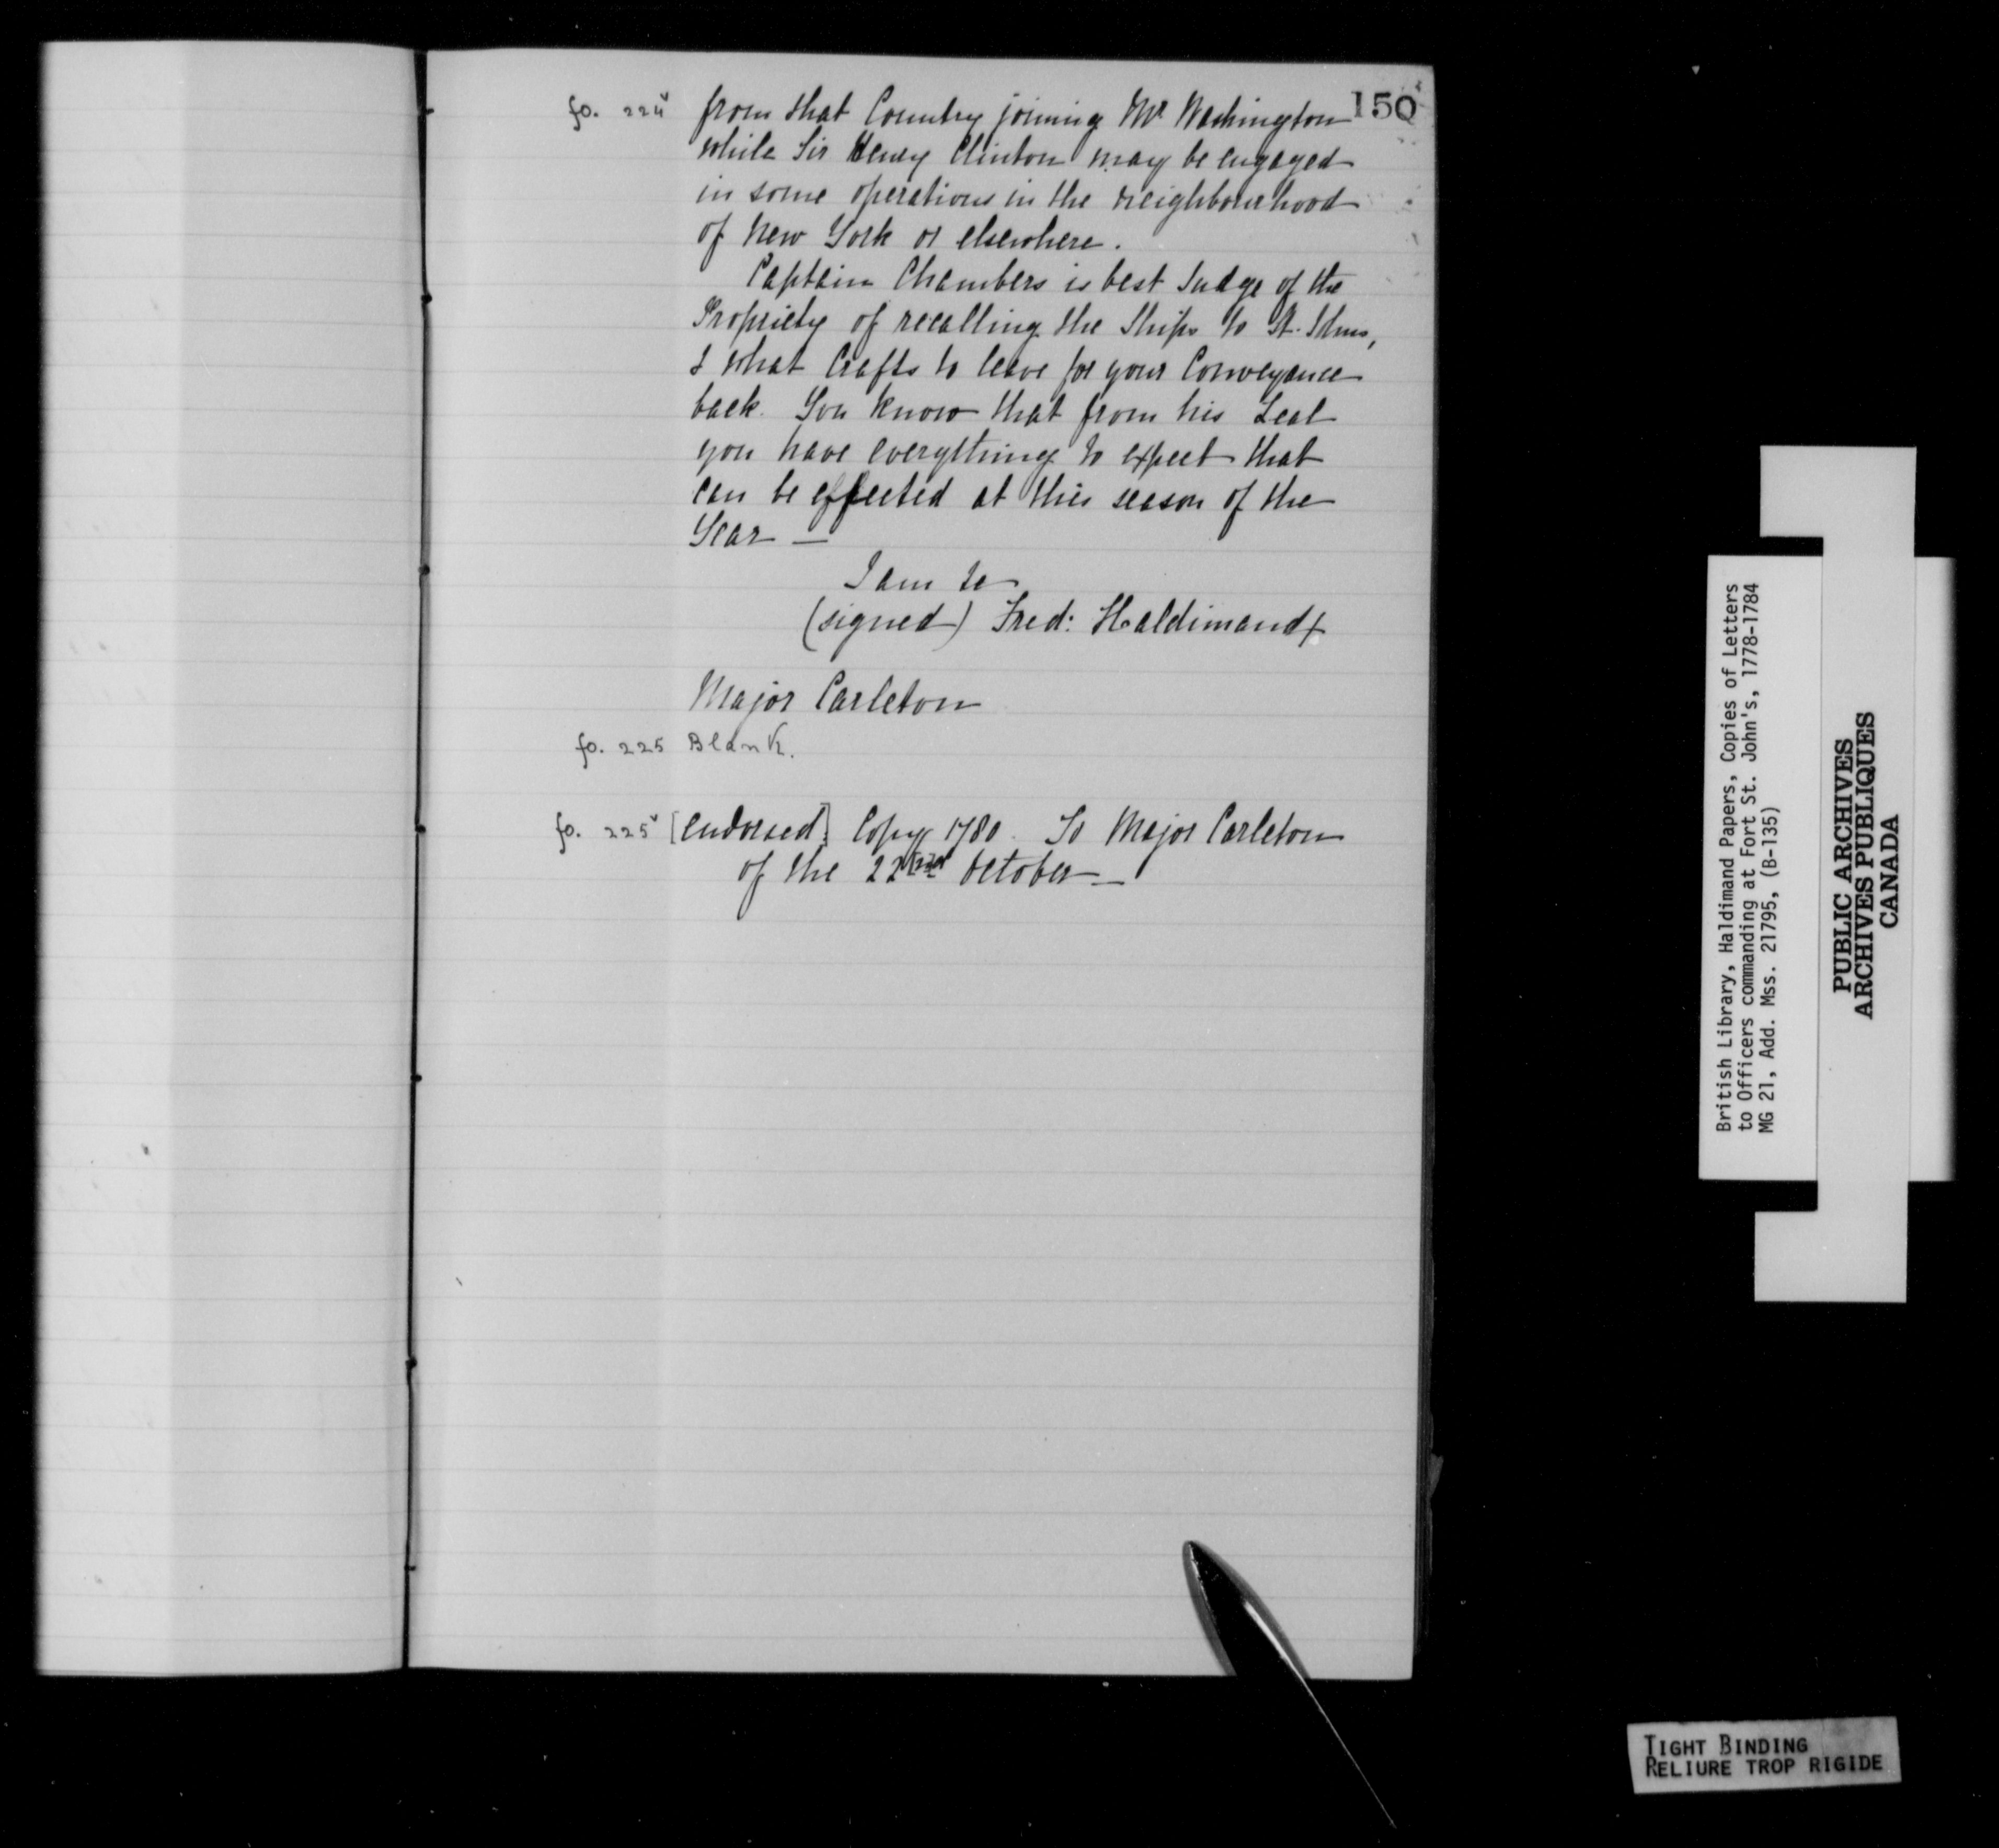 150
fo. 224v from that Country joining Mr Washington
while Sir Henry Clinton may be engaged
in some operations in the neighbourhood
of New York or elsewhere.
Captain Chambers is best Judge of the
Propriety of recalling the Ships to St. Johns,
& what Crafts to leave for your Conveyance
back. You know that from his Zeal
you have everything to expect that
can be effected at this season of the
Year —
I am &c
(signed) Fred: Haldimand
Major Carleton
fo. 225 Blank.
fo. 225v [endorsed] Copy 1780. To Major Carleton
of the 22nd October —
British Library, Haldimand Papers, Copies of Letters
to Officers commanding at Fort St. John's, 1778-1784
MG 21, Add. Mss. 21795, (B-135)
PUBLIC ARCHIVES
ARCHIVES PUBLIQUES
CANADA
TIGHT BINDING
RELIURE TROP RIGIDE